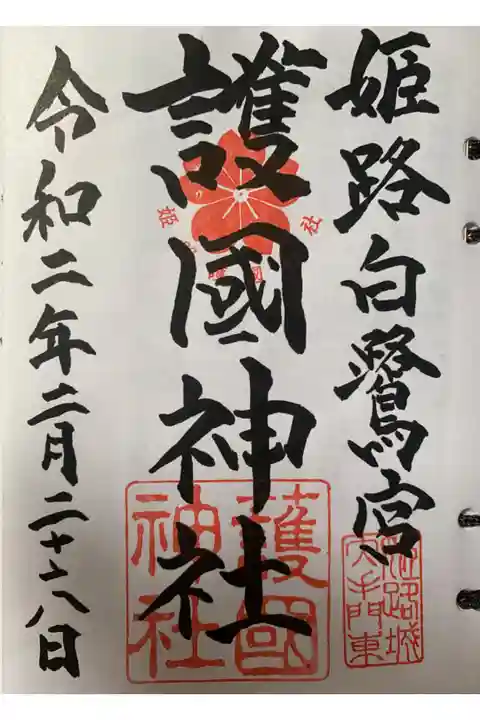 姫路白鷺宮
護國神社
令和二年二月二十六日
姫 護國 社
護國
神社
姫路城
大手門東